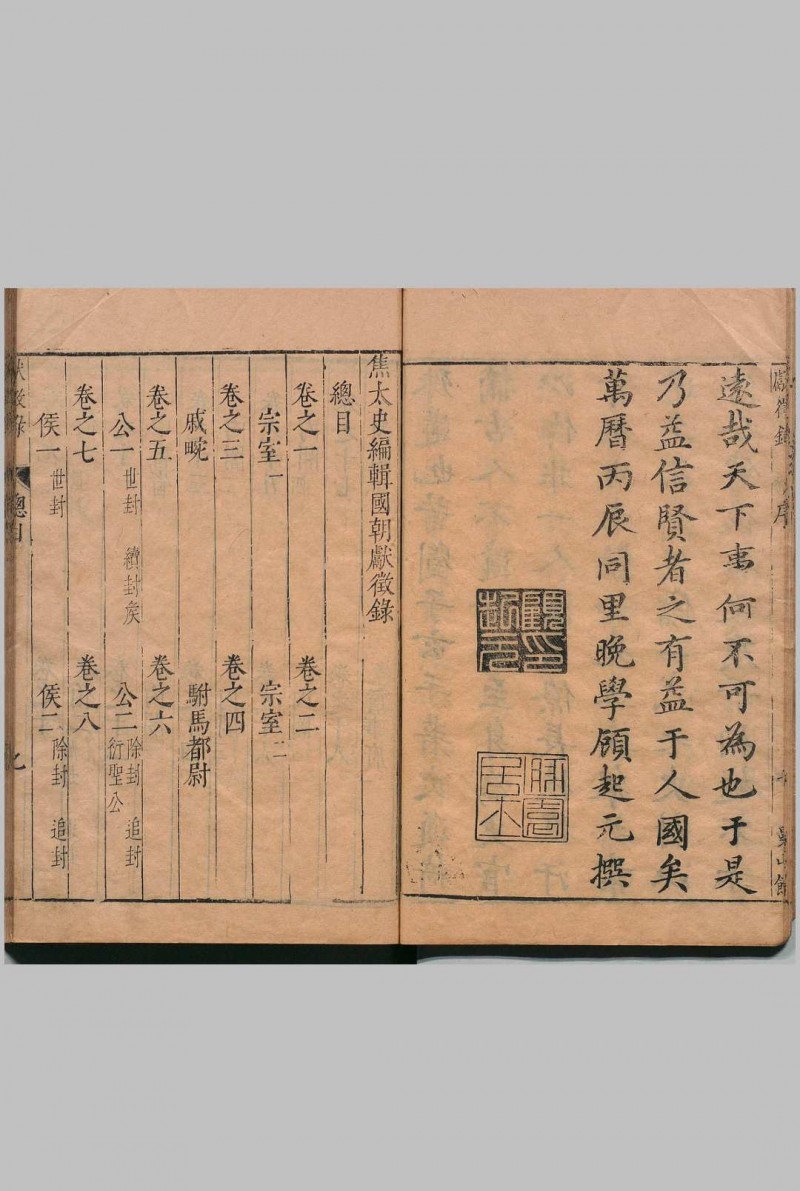 遠哉天下事何不可為也于是
乃益信賢者之有益于人國矣
萬曆丙辰同里晚學顧起元撰
顧起元印
焦太史編輯國朝獻徵錄
總目
卷之一 卷之二
宗室一 宗室二
卷之三 卷之四
戚畹 駙馬都尉
卷之五 卷之六
公一 世封 續封矦 公二 除封 追封 衍聖公
卷之七 卷之八
侯一 世封 侯二 除封 追封
獻徵錄 總目